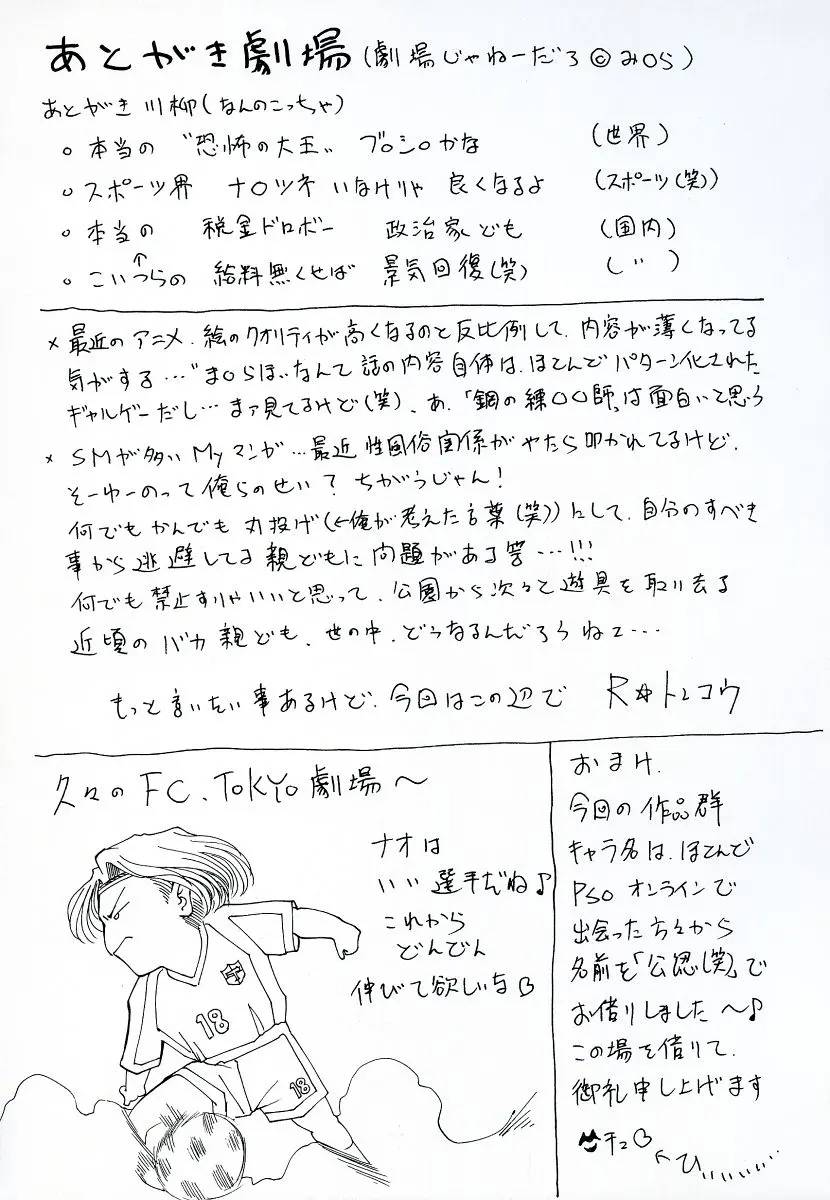 あとがき劇場(劇場じゃねーだろ©みOら)
あとがき川柳(なんのこっちゃ)
○ 本当の "恐怖の大王" ブOシOかな (世界)
○ スポーツ界 ナOツネ いなけりゃ 良くなるよ (スポーツ(笑))
○ 本当の 税金ドロボー 政治家ども (国内)
↑
○ こいつらの 給料無くせば 景気回復(笑) (〃)
× 最近のアニメ、絵のクオリティが高くなるのと反比例して、内容が薄くなってる
気がする…"まOらほ"なんて話の内容自体は、ほとんどパターン化された
ギャルゲーだし…まァ見てるけど(笑)、あ、「鋼の練〇〇師」は面白いと思う
× SMが多いMyマンガ…最近性風俗関係がやたら叩かれてるけど、
そーゆーのって俺らのせい?ちがうじゃん!
何でもかんでも丸投げ(←俺が考えた言葉(笑))にして、自分のすべき
事から逃避してる親どもに問題がある筈…!!!
何でも禁止すりゃいいと思って、公園から次々と遊具を取り去る
近頃のバカ親ども、世の中、どうなるんだろうねェ…
もっと言いたい事あるけど、今回はこの辺で R☆トンコウ
久々のFC、TOKYO劇場〜
ナオは
いい選手だね♪
これから
どんどん
伸びて欲しいな
18
18
おまけ、
今回の作品群
キャラ名は、ほとんど
PSOオンラインで
出会った方々から
名前を「公認(笑)」で
お借りしました〜♪
この場を借りて、
御礼申し上げます